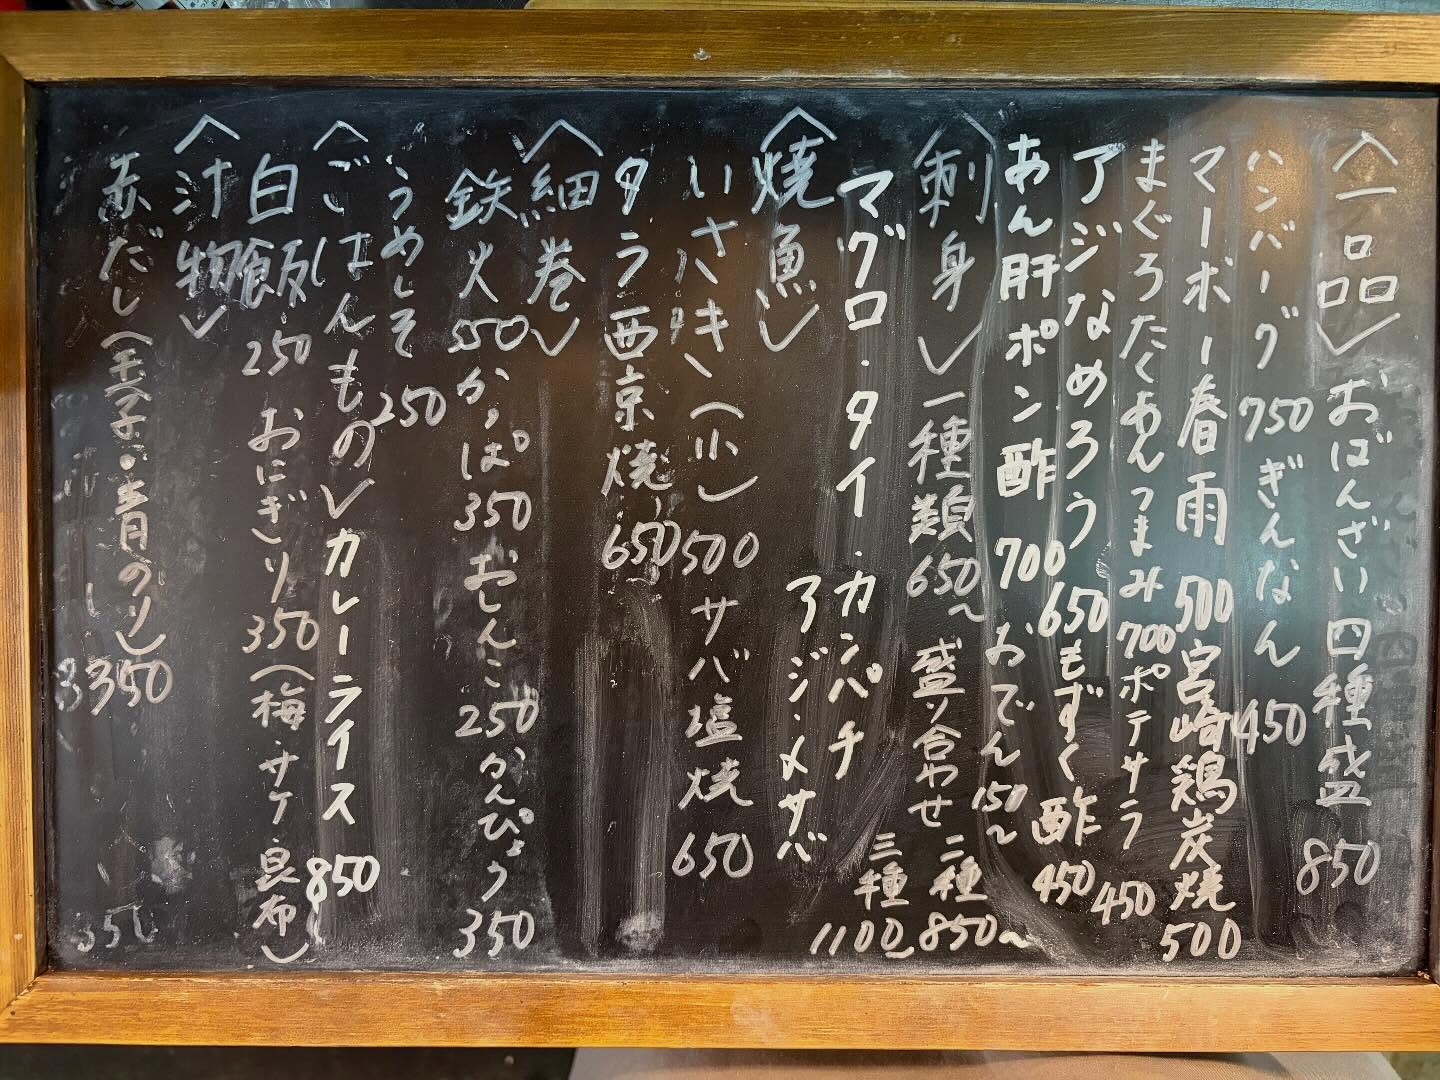 〈一品〉おばんざい四種盛 850
ハンバーグ 750 ぎんなん 450
マーボー春雨 500 宮崎鶏炭焼 500
まぐろたくあんつまみ 700 ポテサラ 450
アジなめろう 650 もずく酢 450
あん肝ポン酢 700 おでん 150～
〈刺身〉一種類 650～ 盛り合わせ 二種 850～
三種 1100
マグロ・タイ・カンパチ
アジ・〆サバ
〈焼魚〉
いさき(小) 500 サバ塩焼 650
タラ西京焼 650
〈細巻〉
鉄火 550 かっぱ 350 おしんこ 250 かんぴょう 350
うめしそ 250
〈ごはんもの〉カレーライス 850
白飯 250 おにぎり 350 (梅・サケ・昆布)
〈汁物〉
赤だし(玉子・青のり) 350